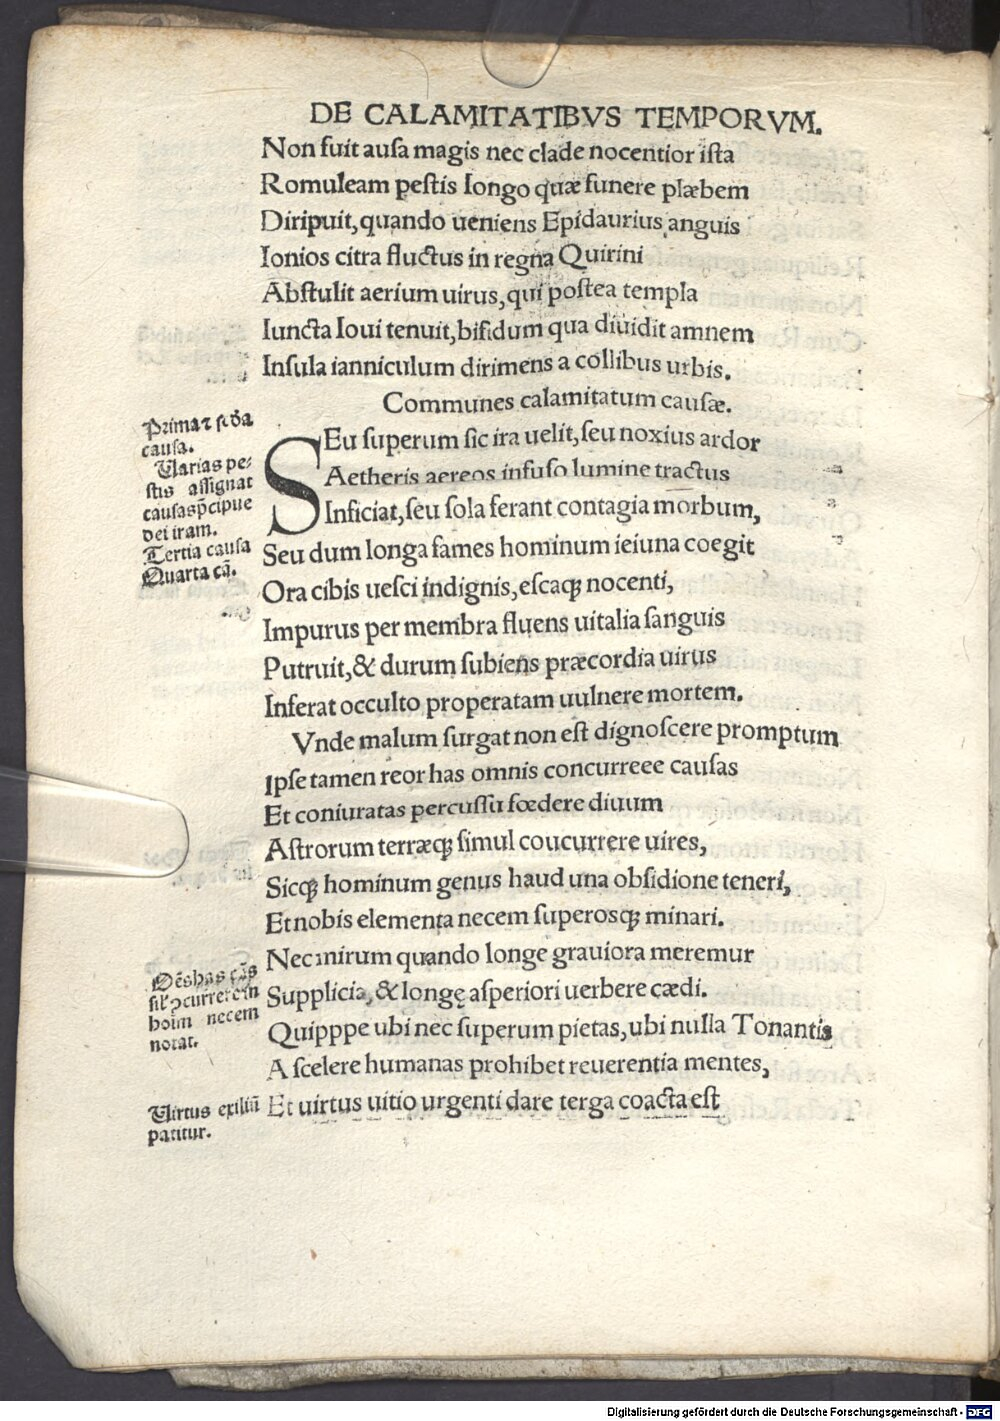 DE CALAMITATIBVS TEMPORVM.
Non fuit ausa magis nec clade nocentior ista
Romuleam pestis longo quæ funere plæbem
Diripuit, quando ueniens Epidaurius anguis
Ionios citra fluctus in regna Quirini
Abstulit aerium uirus, qui postea templa
Iuncta Ioui tenuit, bifidum qua diuidit amnem
Insula ianniculum dirimens a collibus urbis.
Communes calamitatum causæ.
SEu superum sic ira uelit, seu noxius ardor
Aetheris aereos infuso lumine tractus
Inficiat, seu sola ferant contagia morbum,
Seu dum longa fames hominum ieiuna coegit
Ora cibis uesci indignis, escaqꝫ nocenti,
Impurus per membra fluens uitalia sanguis
Putruit, & durum subiens præcordia uirus
Inferat occulto properatam uulnere mortem.
Vnde malum surgat non est dignoscere promptum
Ipse tamen reor has omnis concurreee causas
Et coniuratas percussu fœdere diuum
Astrorum terræqꝫ simul coucurrere uires,
Sicqꝫ hominum genus haud una obsidione teneri,
Et nobis elementa necem superosqꝫ minari.
Nec mirum quando longe grauiora meremur
Supplicia, & longe asperiori uerbere cædi.
Quipppe ubi nec superum pietas, ubi nulla Tonantis
A scelere humanas prohibet reuerentia mentes,
Et uirtus uitio urgenti dare terga coacta est
Prima ⁊ scd̄a
causa.
Uarias pe⸗
stis assignat
causas p̄cipue
dei iram.
Tertia causa
Quarta cā.
Oēs has cās
sil' ꝯcurrere in
hoīm necem
notat.
Uirtus exiliū
patitur.
Digitalisierung gefördert durch die Deutsche Forschungsgemeinschaft - DFG